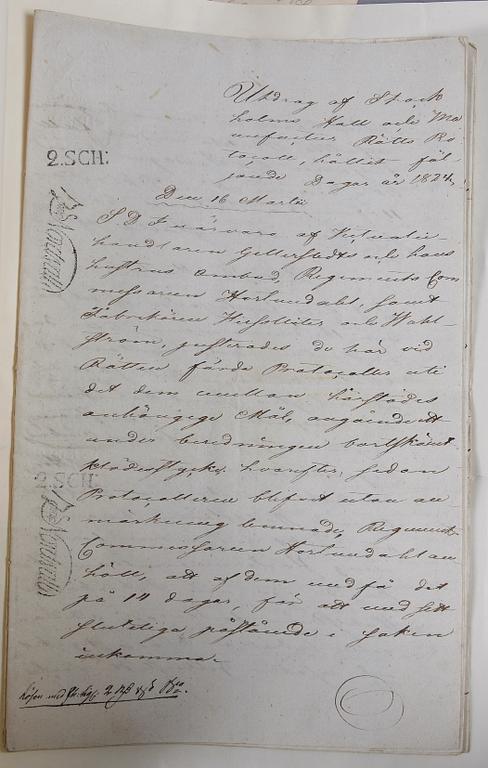 Utdrag af Stock
holms Hall och Ma
nufactur Rätts Pro
tocoll, hållit föl
jande Dagar år 1824.
2.SCH:
Den 16 Martii
S. D. I närvaro af Victualie-
handlaren Gellerstedts och hans
hustrus ombud, Regements Com
missarien Hortundahl, samt
Fabrikören och Wahl-
ström, justerades de här vid
Rätten förde Protocoller uti
det dem emellan härstädes
anhängige Mål, angående ett
under beredningen bortskämt
klädesstycke, hvarefter, sedan
2.SCH:
Protocollerne blifvit utan an
märkning lemnade, Regements
Commissarien Hortundahl an
höll, att af dem undfå del
på 14 dagar, för att med sitt
slutliga påstående i saken
inkomma.
Lösen med